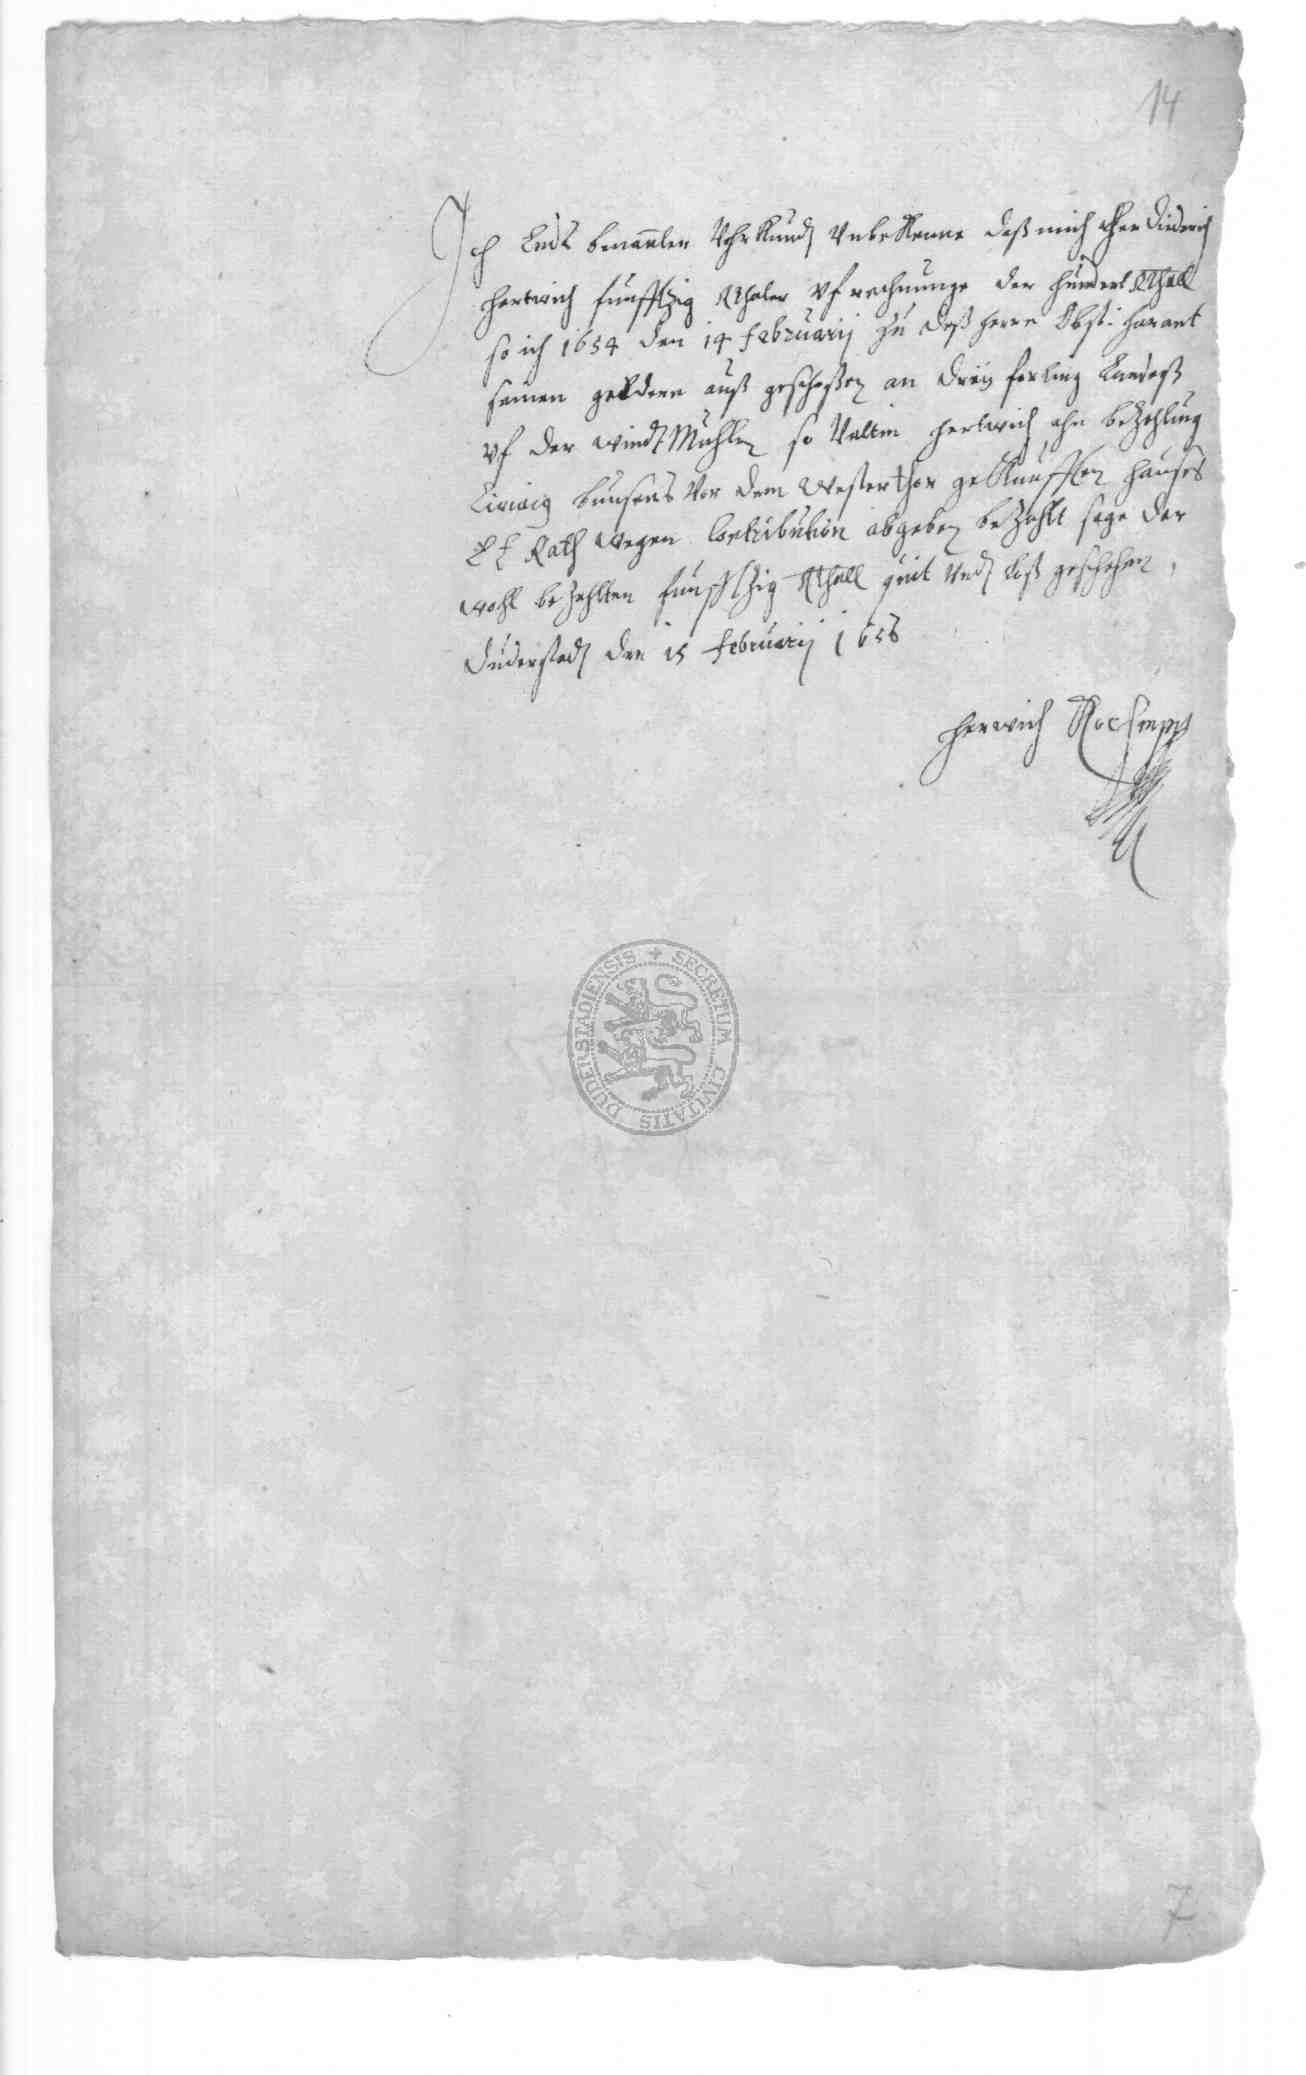 14
Ich Endts benantter Uhrkundt undt bekenne daß mich Herr Diederich
Hertwich funfftzig Rthaler uf rechnunge der hundert Rthall
so ich 1654 den 14 Februarij zu deß Herrn Obst: Harant
seinen geldern auß geschoßen an dreÿ forling Landeß
uf der windt Muhlen so Valtin Hertwich ahn bezahlung
bunsens vor dem Westerthor gekaufften hauses
E E Rath wegen Contribution abgeben bezahlt sage der
wohl bezahlten funfftzig Rthall quit undt loß geschehen,
Duderstadt den 15 Februarij 1656
Herwich
SECRETUM CIVITATIS DUDERSTADIENSIS
7